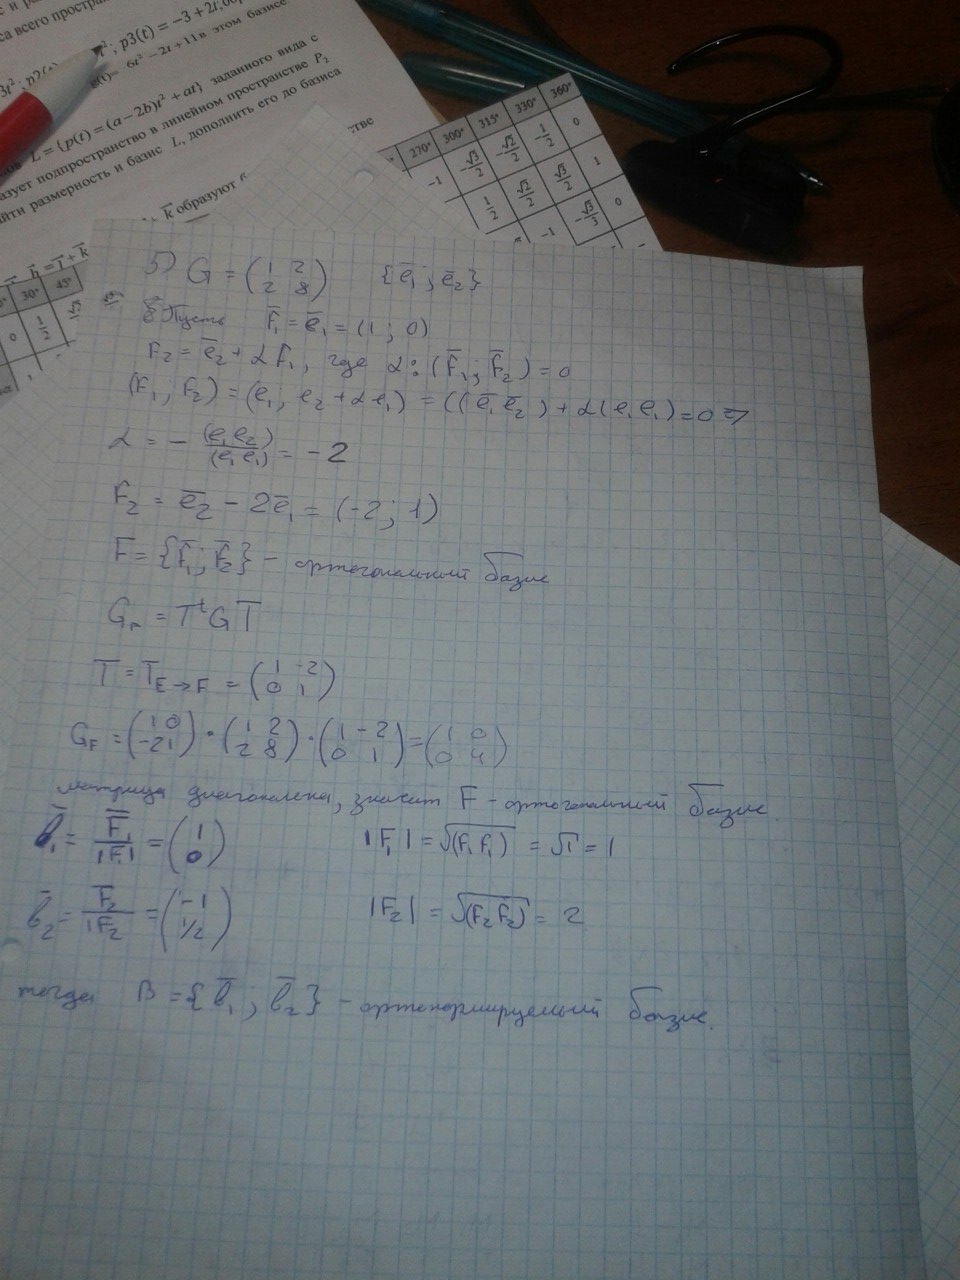 3t²; p2(t) t²; p3(t) = −3 + 2t, об
са всего простран
6t² − 2t + 11 в этом базисе
L = {p(t) = (a − 2b)t² + at} заданного вида с
азует подпространство в линейном пространстве P₂
йти размерность и базис L, дополнить его до базиса
стве
k образуют
h = i + k
270° 300° 315° 330° 360°
−1 −√3/2 −√2/2 −1/2 0
1/2 √2/2 √3/2 1
−1 −√3/3 0
30° 45°
0 1/2
5) G = (1 2; 2 8) {ē₁; ē₂}
Пусть F̄₁ = ē₁ = (1; 0)
F₂ = ē₂ + αF₁, где α: (F̄₁; F̄₂) = 0
(F₁; F₂) = (e₁; e₂ + αe₁) = ((ē₁ē₂) + α(e₁e₁) = 0 ⇒
α = − (e₁e₂)/(e₁e₁) = −2
F₂ = ē₂ − 2ē₁ = (−2; 1)
F̄ = {F̄₁; F̄₂} – ортогональный базис
G_F = TᵗGT
T = T_E→F = (1 −2; 0 1)
G_F = (1 0; −2 1) · (1 2; 2 8) · (1 −2; 0 1) = (1 0; 0 4)
матрица диагональна, значит F – ортогональный базис.
b̄₁ = F̄₁/|F₁| = (1; 0) |F₁| = √(F₁F₁) = √1 = 1
b̄₂ = F̄₂/|F₂ = (−1; 1/2) |F₂| = √(F₂F₂) = 2
тогда B = {b̄₁; b̄₂} – ортонормируемый базис.